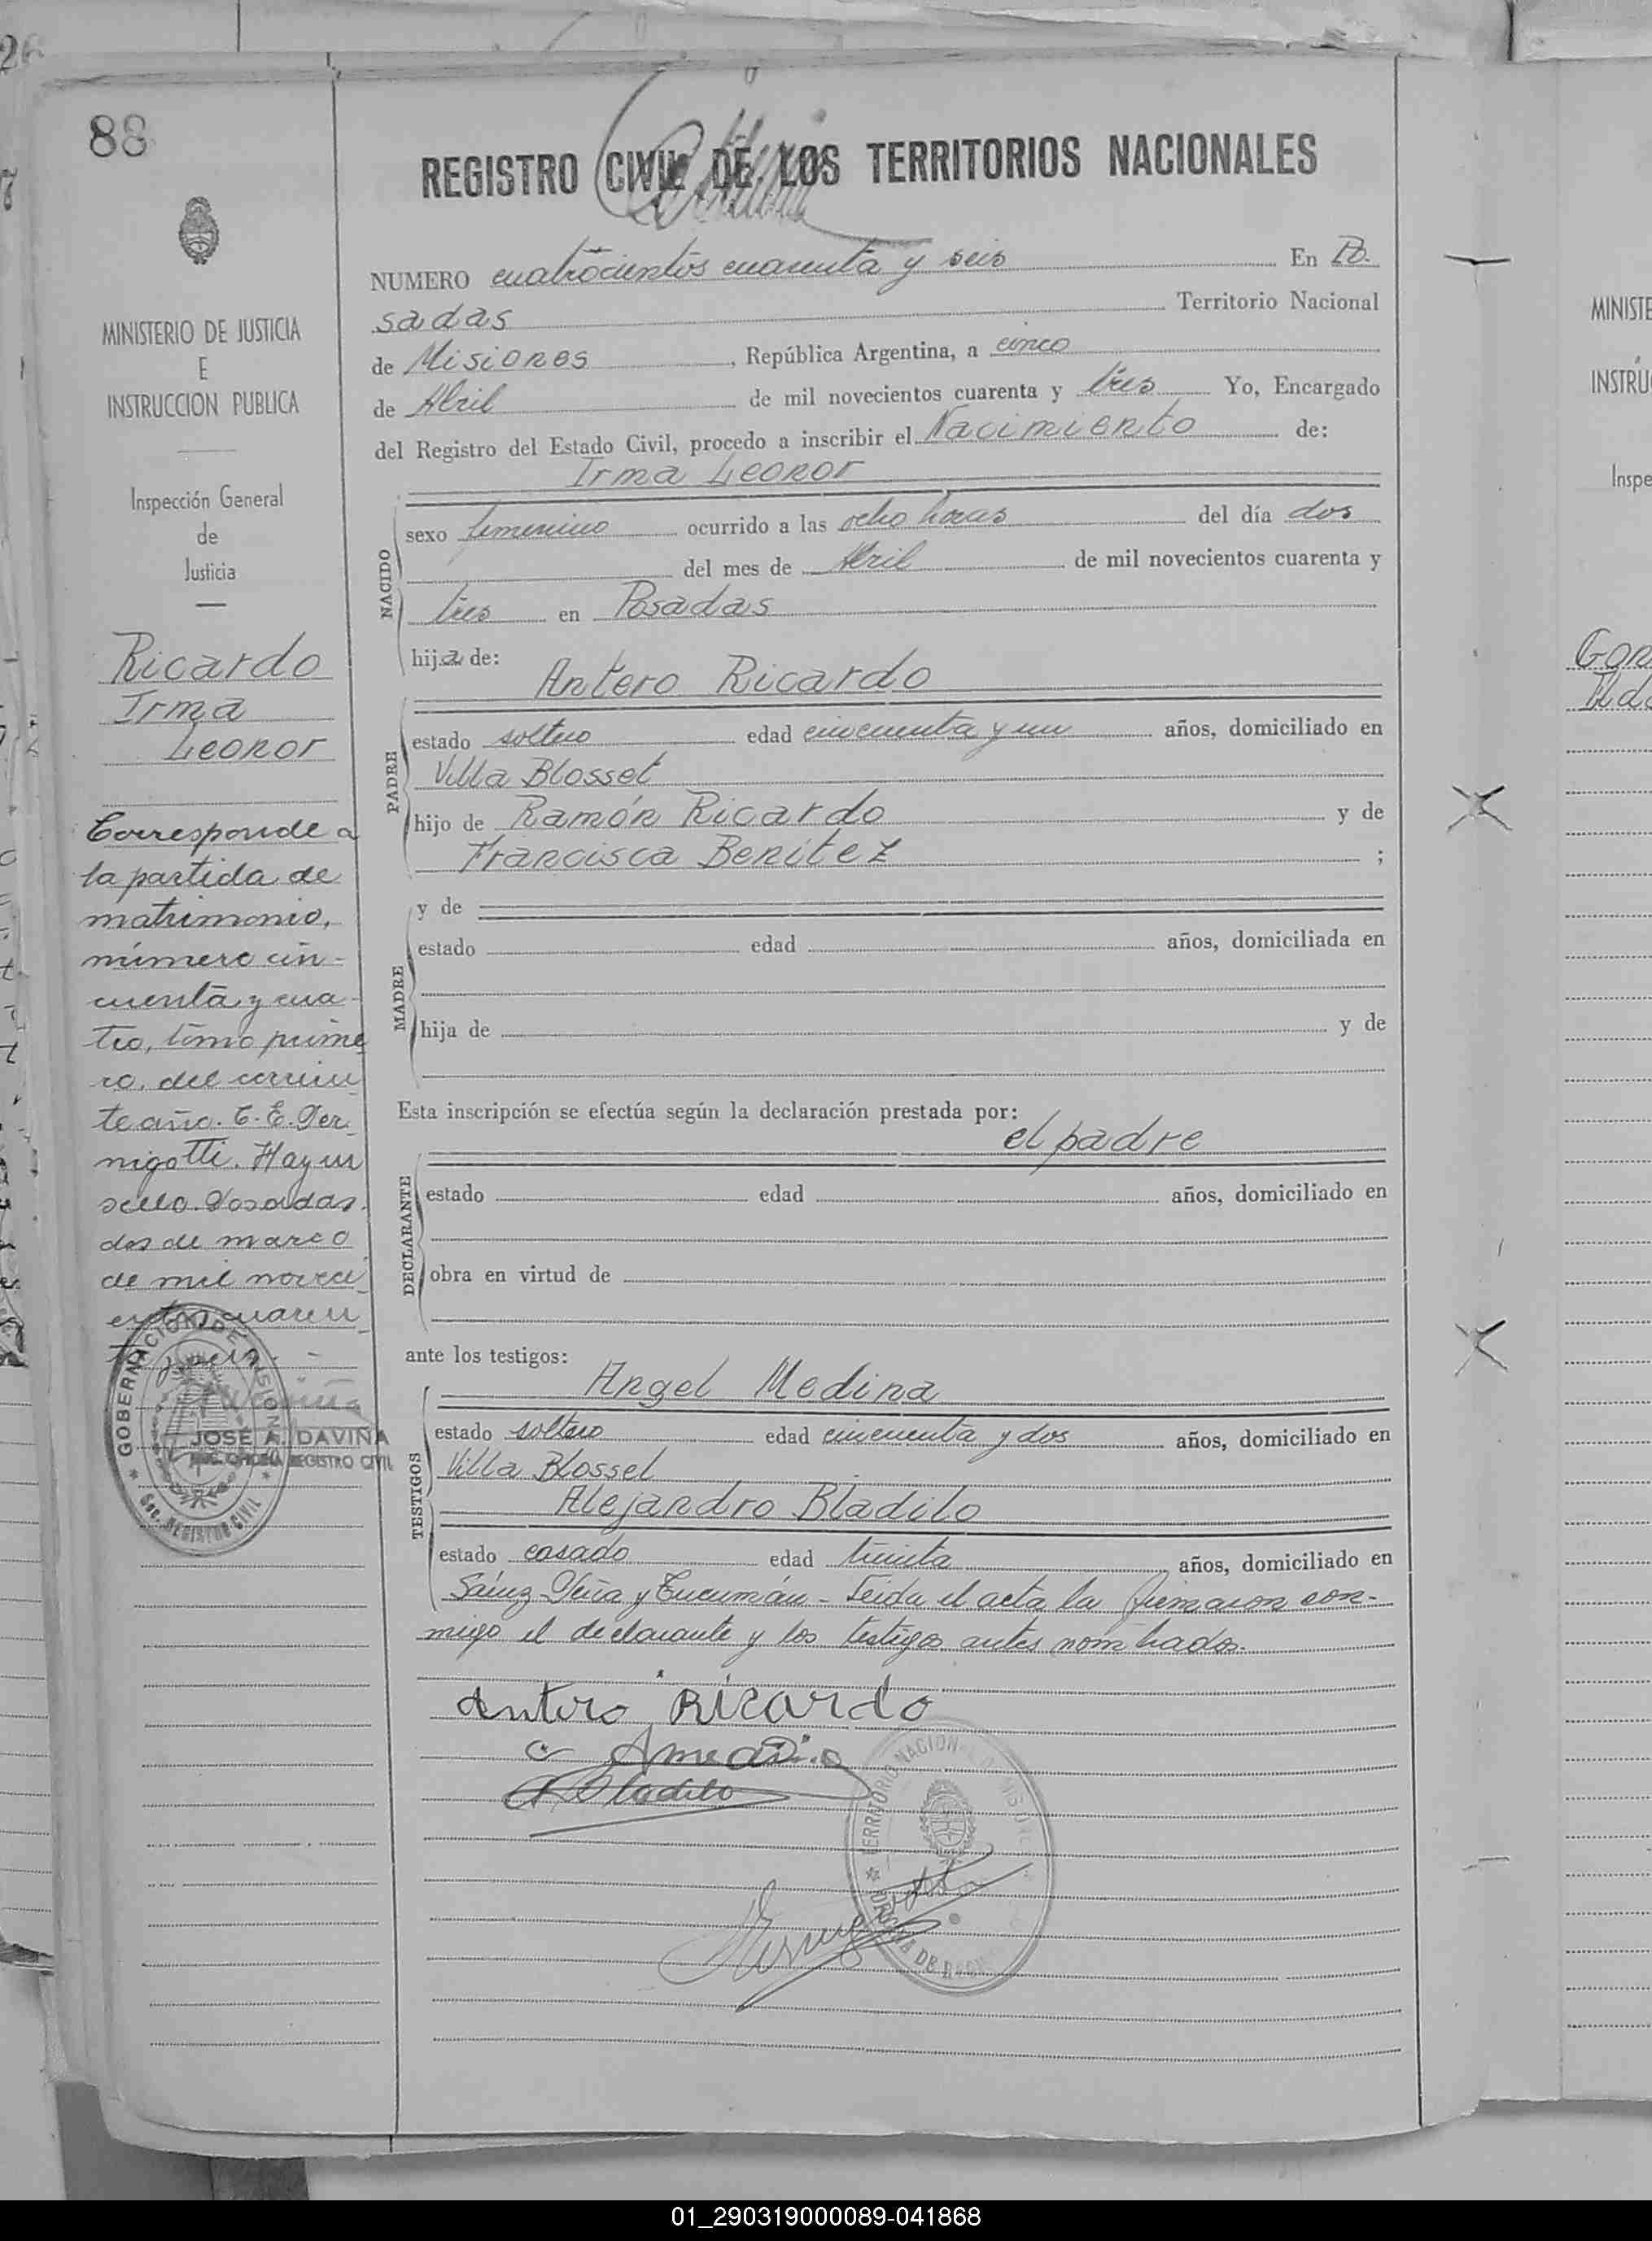 88
REGISTRO CIVIL DE LOS TERRITORIOS NACIONALES
NUMERO cuatrocientos cuarenta y seis En Po-
sadas Territorio Nacional
de Misiones, República Argentina, a cinco
de Abril de mil novecientos cuarenta y tres Yo, Encargado
del Registro del Estado Civil, procedo a inscribir el Nacimiento de:
Irma Leonor
NACIDO
sexo femenino ocurrido a las ocho horas del día dos
del mes de Abril de mil novecientos cuarenta y
tres en Posadas
hija de:
Antero Ricardo
PADRE
estado soltero edad cincuenta y un años, domiciliado en
Villa Blosset
hijo de Ramón Ricardo y de
Francisca Benitez ;
MADRE
y de
estado edad años, domiciliada en
hija de y de
Esta inscripción se efectúa según la declaración prestada por:
el padre
DECLARANTE
estado edad años, domiciliado en
obra en virtud de
ante los testigos:
TESTIGOS
Angel Medina
estado soltero edad cincuenta y dos años, domiciliado en
Villa Blosset
Alejandro Bladilo
estado casado edad treinta años, domiciliado en
Sáenz Peña y Tucumán - Leida el acta la firmaron con-
migo el declarante y los testigos antes nombrados.
Antero Ricardo
A Medina
A Bladilo
TERRITORIO NACIONAL DE MISIONES
MINISTERIO DE JUSTICIA
E
INSTRUCCION PUBLICA
Inspección General
de
Justicia
Ricardo
Irma
Leonor
Corresponde a
la partida de
matrimonio,
número cin-
cuenta y cua-
tro, tomo prime
ro, del corrien
te año. C. E. Per
nigotti. Hay un
sello. Posadas,
dos de marzo
de mil noveci
entos cuaren
ta y
GOBERNACION DE MISIONES
JOSE A. DAVIÑA
REGISTRO CIVIL
MINISTE
INSTRU
Inspe
01_290319000089-041868